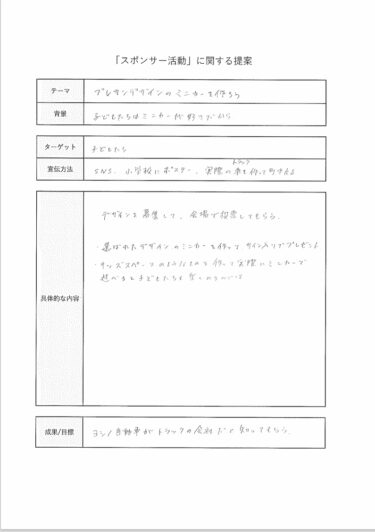 「スポンサー活動」に関する提案
テーマ ブレサンデザインのミニカーを作ろう
背景 子どもたちはミニカーが好きだから
ターゲット 子どもたち
トラック
宣伝方法 SNS、小学校にポスター、実際の車を作って
デザインを募集して、会場で投票してもらう。
・選ばれたデザインのミニカーを作って サイン入りでプレゼント
・キッズスペースのようなものを作って実際にミニカーで
遊べると子どもたちも
具体的な内容
成果/目標 ヨシノ自動車がトラックの会社だと知ってもらう。